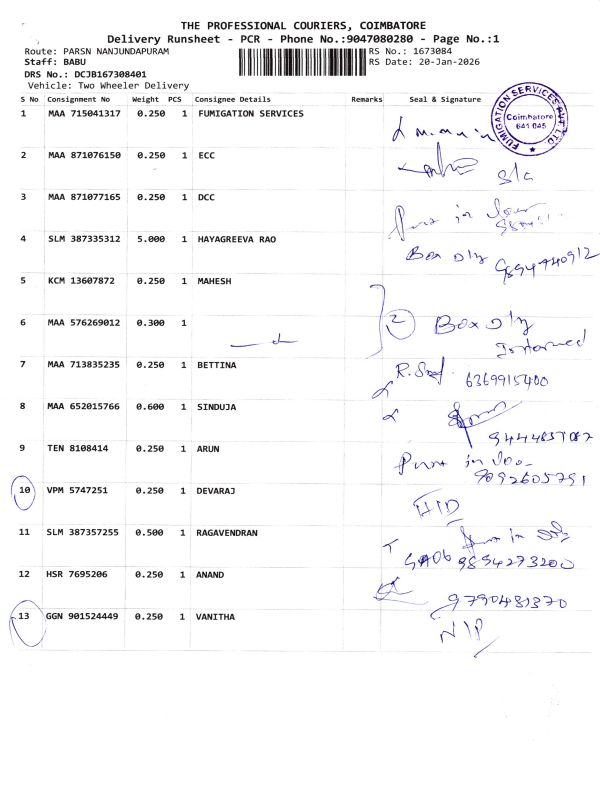 THE PROFESSIONAL COURIERS, COIMBATORE
Delivery Runsheet - PCR - Phone No.:9047080280 - Page No.:1
Route: PARSN NANJUNDAPURAM RS No.: 1673084
Staff: BABU RS Date: 20-Jan-2026
DRS No.: DCJB167308401
Vehicle: Two Wheeler Delivery
S No Consignment No Weight PCS Consignee Details Remarks Seal & Signature
1 MAA 715041317 0.250 1 FUMIGATION SERVICES
FUMIGATION SERVICES PVT. LTD
Coimbatore
641 045
2 MAA 871076150 0.250 1 ECC
3 MAA 871077165 0.250 1 DCC
4 SLM 387335312 5.000 1 HAYAGREEVA RAO
Box Dly 9894740912
5 KCM 13607872 0.250 1 MAHESH
6 MAA 576269012 0.300 1
2 Box Dly
Informed
7 MAA 713835235 0.250 1 BETTINA
6369915400
8 MAA 652015766 0.600 1 SINDUJA
9 TEN 8108414 0.250 1 ARUN
9092605791
10 VPM 5747251 0.250 1 DEVARAJ
11 SLM 387357255 0.500 1 RAGAVENDRAN
9894273200
12 HSR 7695206 0.250 1 ANAND
9790481370
13 GGN 901524449 0.250 1 VANITHA